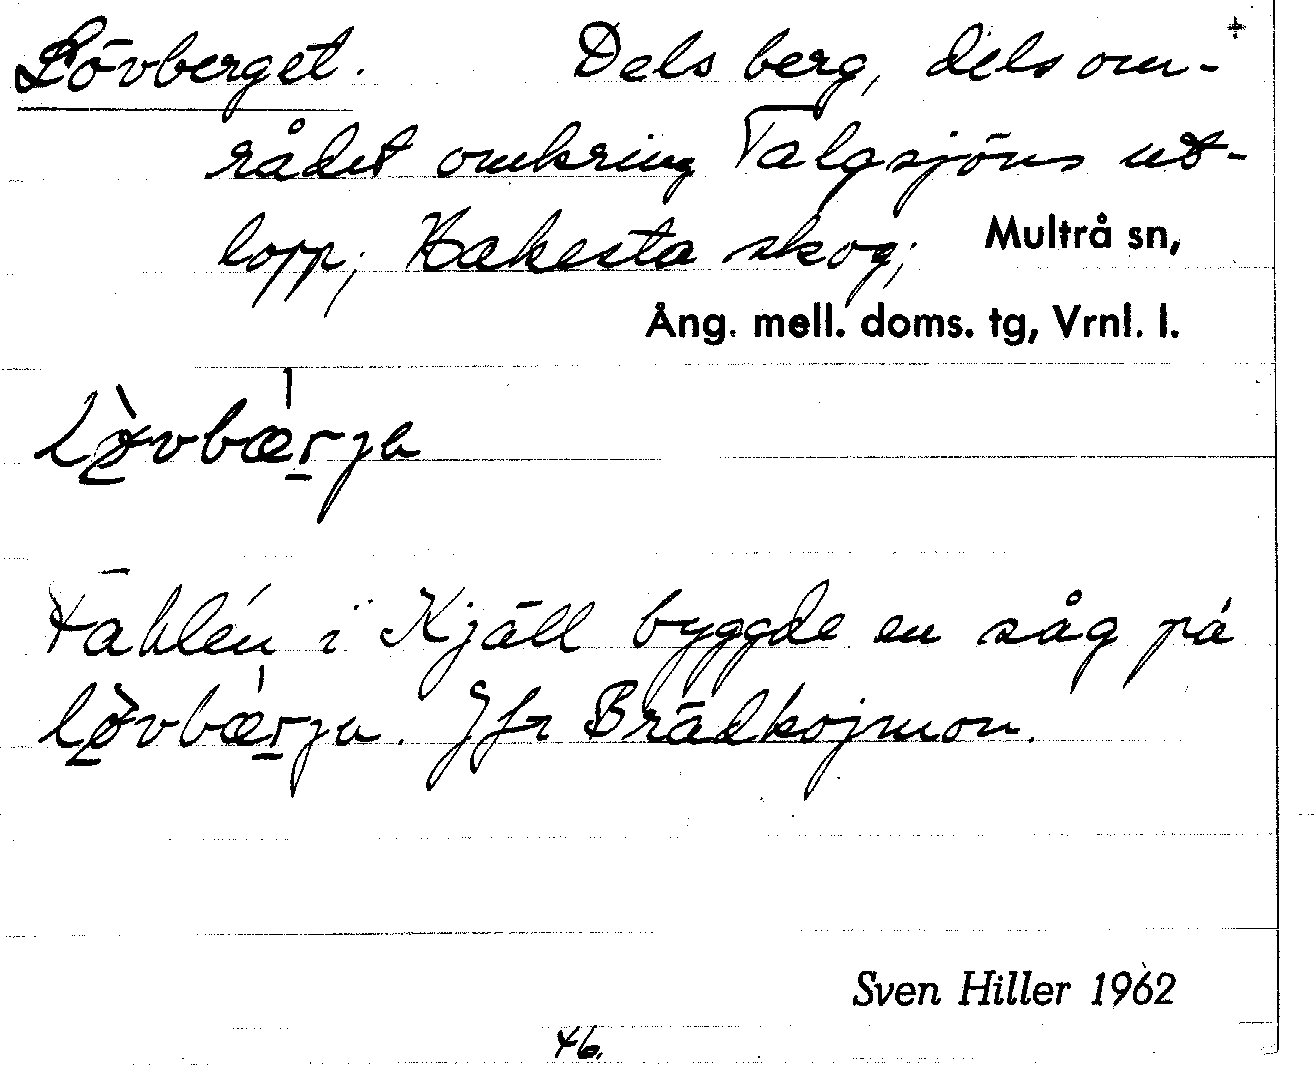 Lövberget. Dels berg, dels om- +
rådet omkring Talgsjöns ut-
lopp; Hakesta skog; Multrå sn,
Ång. mell. doms. tg, Vrnl. l.
Lø̀vbær̠ja
Fahlén i Kjäll byggde en såg på
lø̀vbær̠ja. Jfr Brädkojmon.
Sven Hiller 1962
46.